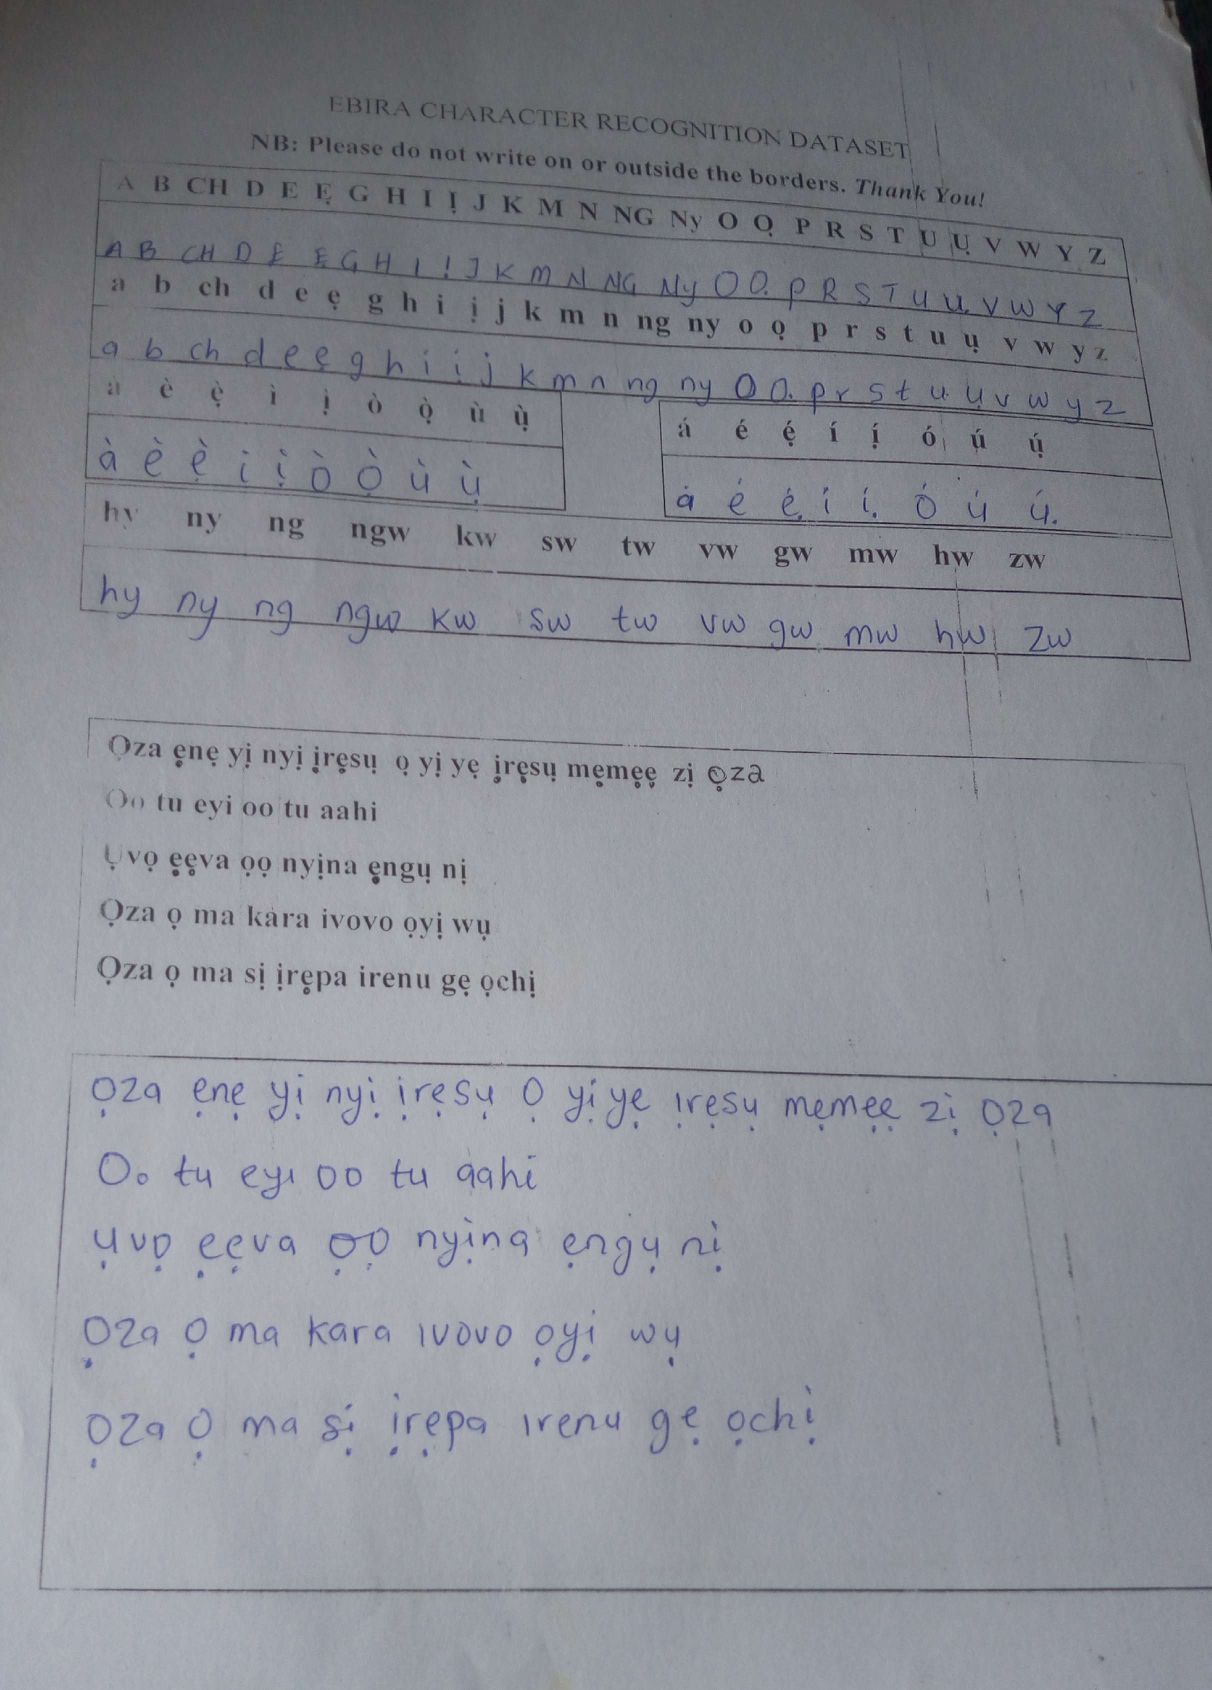 EBIRA CHARACTER RECOGNITION DATASET
NB: Please do not write on or outside the borders. Thank You!
A B CH D E Ẹ G H I Ị J K M N NG Ny O Ọ P R S T U Ụ V W Y Z
A B CH D E Ẹ G H I Ị J K M N NG Ny O Ọ P R S T U Ụ V W Y Z
a b ch d e ẹ g h i ị j k m n ng ny o ọ p r s t u ụ v w y z
a b ch d e ẹ g h i ị j k m n ng ny o ọ p r s t u ụ v w y z
à è ẹ̀ ì ị̀ ò ọ̀ ù ụ̀
à è ẹ̀ ì ị̀ ò ọ̀ ù ụ̀
á é ẹ́ í ị́ ó ú ụ́
á é ẹ́ í ị́ ó ú ụ́
hy ny ng ngw kw sw tw vw gw mw hw zw
hy ny ng ngw kw sw tw vw gw mw hw zw
Ọza ẹnẹ yị nyị ịrẹsụ ọ yị yẹ ịrẹsụ mẹmẹẹ zị ọza
Oo tu eyi oo tu aahi
Ụvọ ẹẹva ọọ nyịna ẹngụ nị
Ọza ọ ma kara ivovo ọyị wụ
Ọza ọ ma sị ịrẹpa irenu gẹ ọchị
Ọza ẹnẹ yị nyị ịrẹsụ Ọ yị yẹ ịrẹsụ mẹmẹẹ zị Ọza
Oo tu eyi oo tu aahi
Ụvọ ẹẹva ọọ nyịna ẹngụ nị
Ọza ọ ma kara ivovo ọyị wụ
Ọza ọ ma sị ịrẹpa irenu gẹ ọchị